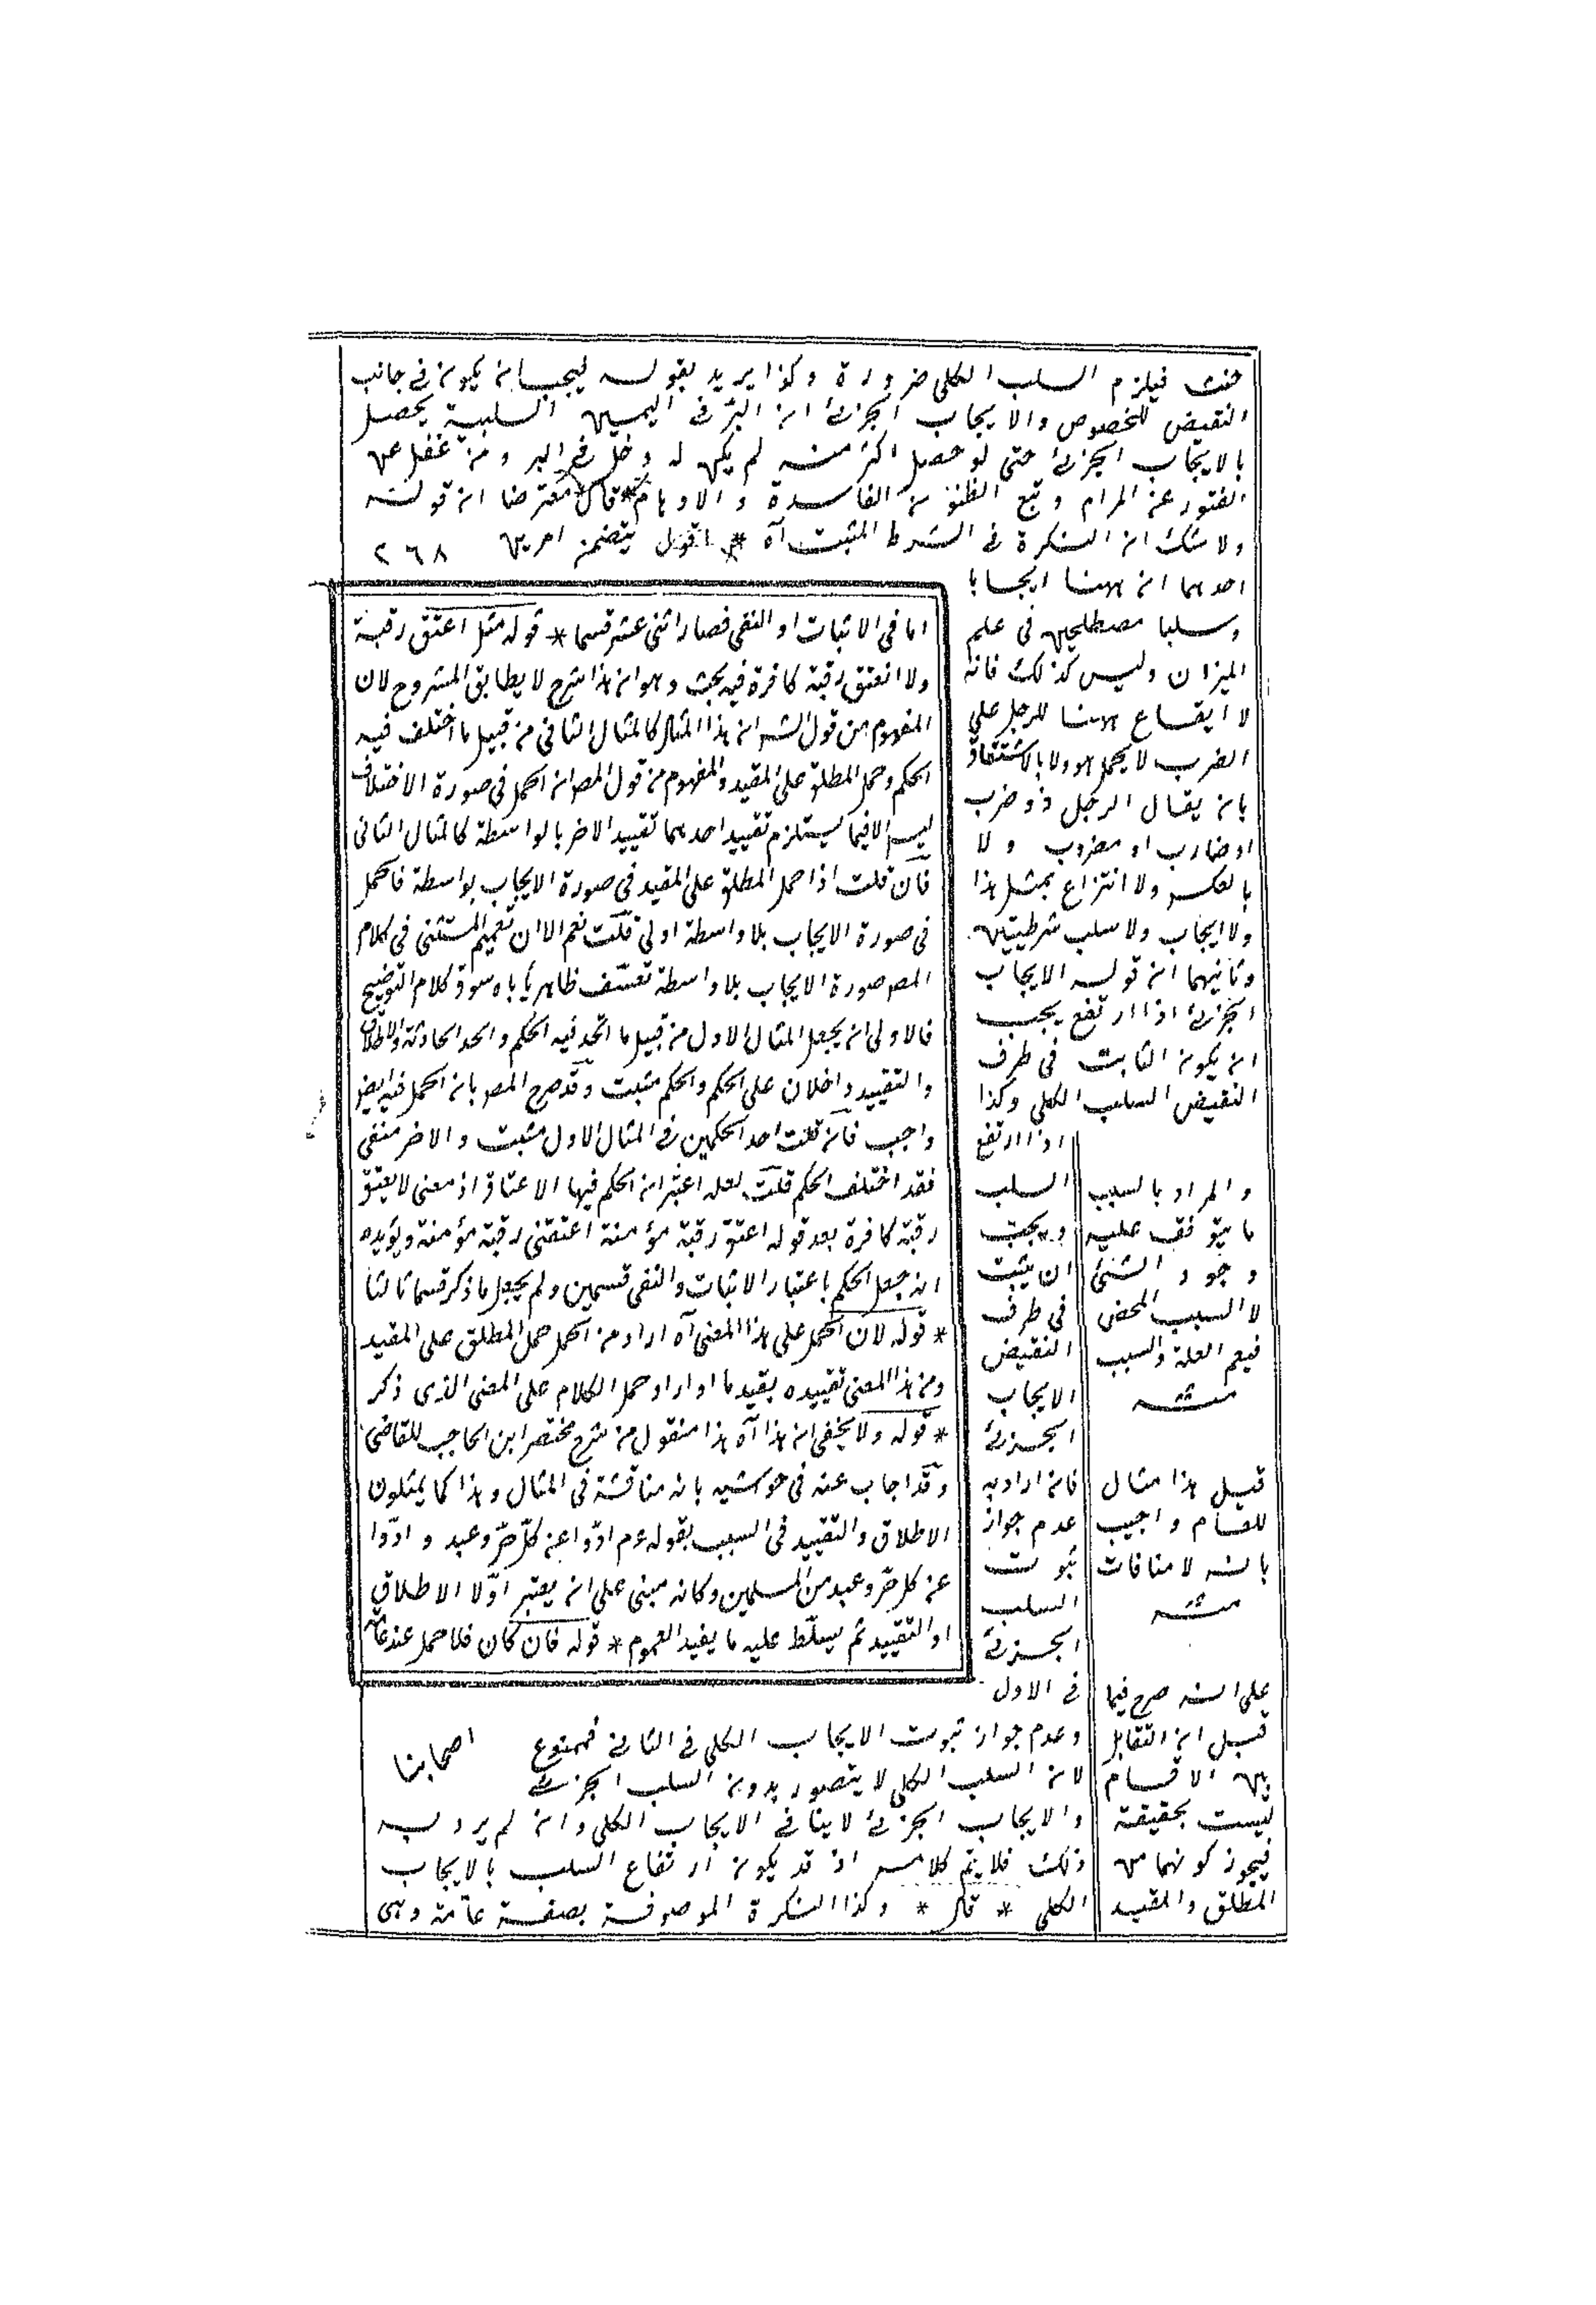 حنث فيلزم السلب الكلى ضرورة وكذا يريد بقوله ليجب ان يكون فى جانب
النقيض للخصوص والايجاب الجزئى ان البر فى اليمين السلبية يحصل
بالايجاب الجزئى حتى لو حصل اكثر منه لم يكن له دخل فى البر ومن غفل عن
الفتور عن المرام وتبع الظنون الفاسدة والاوهام قال معترضا ان قوله
ولا شك ان النكرة فى الشرط المثبت آه * اقول يتضمن امرين ٢٦٨
احدهما ان ههنا ايجابا
وسلبا مصطلحين فى علم
الميزان وليس كذلك فانه
لا ايقاع ههنا للرجل على
الضرب لا بحمل هو ولا بالاشتقاق
بان يقال الرجل ذو ضرب
او ضارب او مضروب ولا
بالعكس ولا انتزاع بمثل هذا
ولا ايجاب ولا سلب شرطيتين
وثانيهما ان قوله الايجاب
الجزئى اذا ارتفع يجب
ان يكون الثابت فى طرف
النقيض السلب الكلى وكذا
اذا ارتفع
السلب
ويجب
ان يثبت
فى طرف
النقيض
الايجاب
الجزئى
فان اراد به
عدم جواز
ثبوت
السلب
الجزئى
فى الاول
وعدم جواز ثبوت الايجاب الكلى فى الثانى فممنوع
لان السلب الكلى لا يتصور بدون السلب الجزئى
والايجاب الجزئى لا ينافى الايجاب الكلى وان لم يرد به
ذلك فلا يتم كلامه اذ قد يكون ارتفاع السلب بالايجاب
الكلى * قال * وكذا النكرة الموصوفة بصفة عامة وهى
اما فى الاثبات او النفى فصار اثنى عشر قسما * قوله مثل اعتق رقبة
ولا تعتق رقبة كافرة فيه بحث وهو ان هذا شرح لا يطابق المشروح لان
المفهوم من قول الشه ان هذا المثال كالمثال الثانى من قبيل ما اختلف فيه
الحكم وحمل المطلق على المقيد والمفهوم من قول المص ان الحمل فى صورة الاختلاف
ليس الا فيما يستلزم تقييد احدهما تقييد الاخر بالواسطة كالمثال الثانى
فان قلت اذا حمل المطلق على المقيد فى صورة الايجاب بواسطة فالحمل
فى صورة الايجاب بلا واسطة اولى قلت نعم الا ان تعميم المستثنى فى كلام
المص صورة الايجاب بلا واسطة تعسّف ظاهر يأباه سوق كلام التوضيح
فالاولى ان يجعل المثال الاول من قبيل ما اتحد فيه الحكم واتحد الحادثة والاطلاق
والتقييد داخلان على الحكم والحكم مثبت وقد صرح المص بان الحمل فيه ايض
واجب فان قلت احد الحكمين فى المثال الاول مثبت والاخر منفى
فقد اختلف الحكم قلت لعله اعتبر ان الحكم فيها الاعتاق اذ معنى لا يعتق
رقبة كافرة بعد قوله اعتق رقبة مؤمنة اعتقنى رقبة مؤمنة ويؤيده
انه جعل الحكم باعتبار الاثبات والنفى قسمين ولم يجعل ما ذكر قسما ثالثا
* قوله لان الحمل على هذا المعنى آه اراد من الحمل حمل المطلق على المقيد
ومن هذا المعنى تقييده بقيد ما او اراد حمل الكلام على المعنى الذى ذكر
* قوله ولا يخفى ان هذا آه هذا منقول من شرح مختصر ابن الحاجب للقاضى
وقد اجاب عنه فى حواشيه بانه مناقشة فى المثال وهذا كما يمثلون
الاطلاق والتقييد فى السبب بقوله عم ادّوا عن كلّ حرّ وعبد و ادّوا
عن كل حرّ وعبد من المسلمين وكانه مبنى على ان يعتبر اوّلا الاطلاق
او التقييد ثم يسلّط عليه ما يفيد العموم * قوله فان كان فلا حمل عند عامّة
اصحابنا
والمراد بالسبب
ما يتوقف عليه
وجود الشئ
لا السبب المحض
فيعم العلة والسبب
منه
قيل هذا مثال
للعام واجيب
بانه لا منافات
منه
على انه صرح فيما
قبل ان التقابل
بين الاقسام
ليست بحقيقة
فيجوز كونهما من
المطلق والمقيد